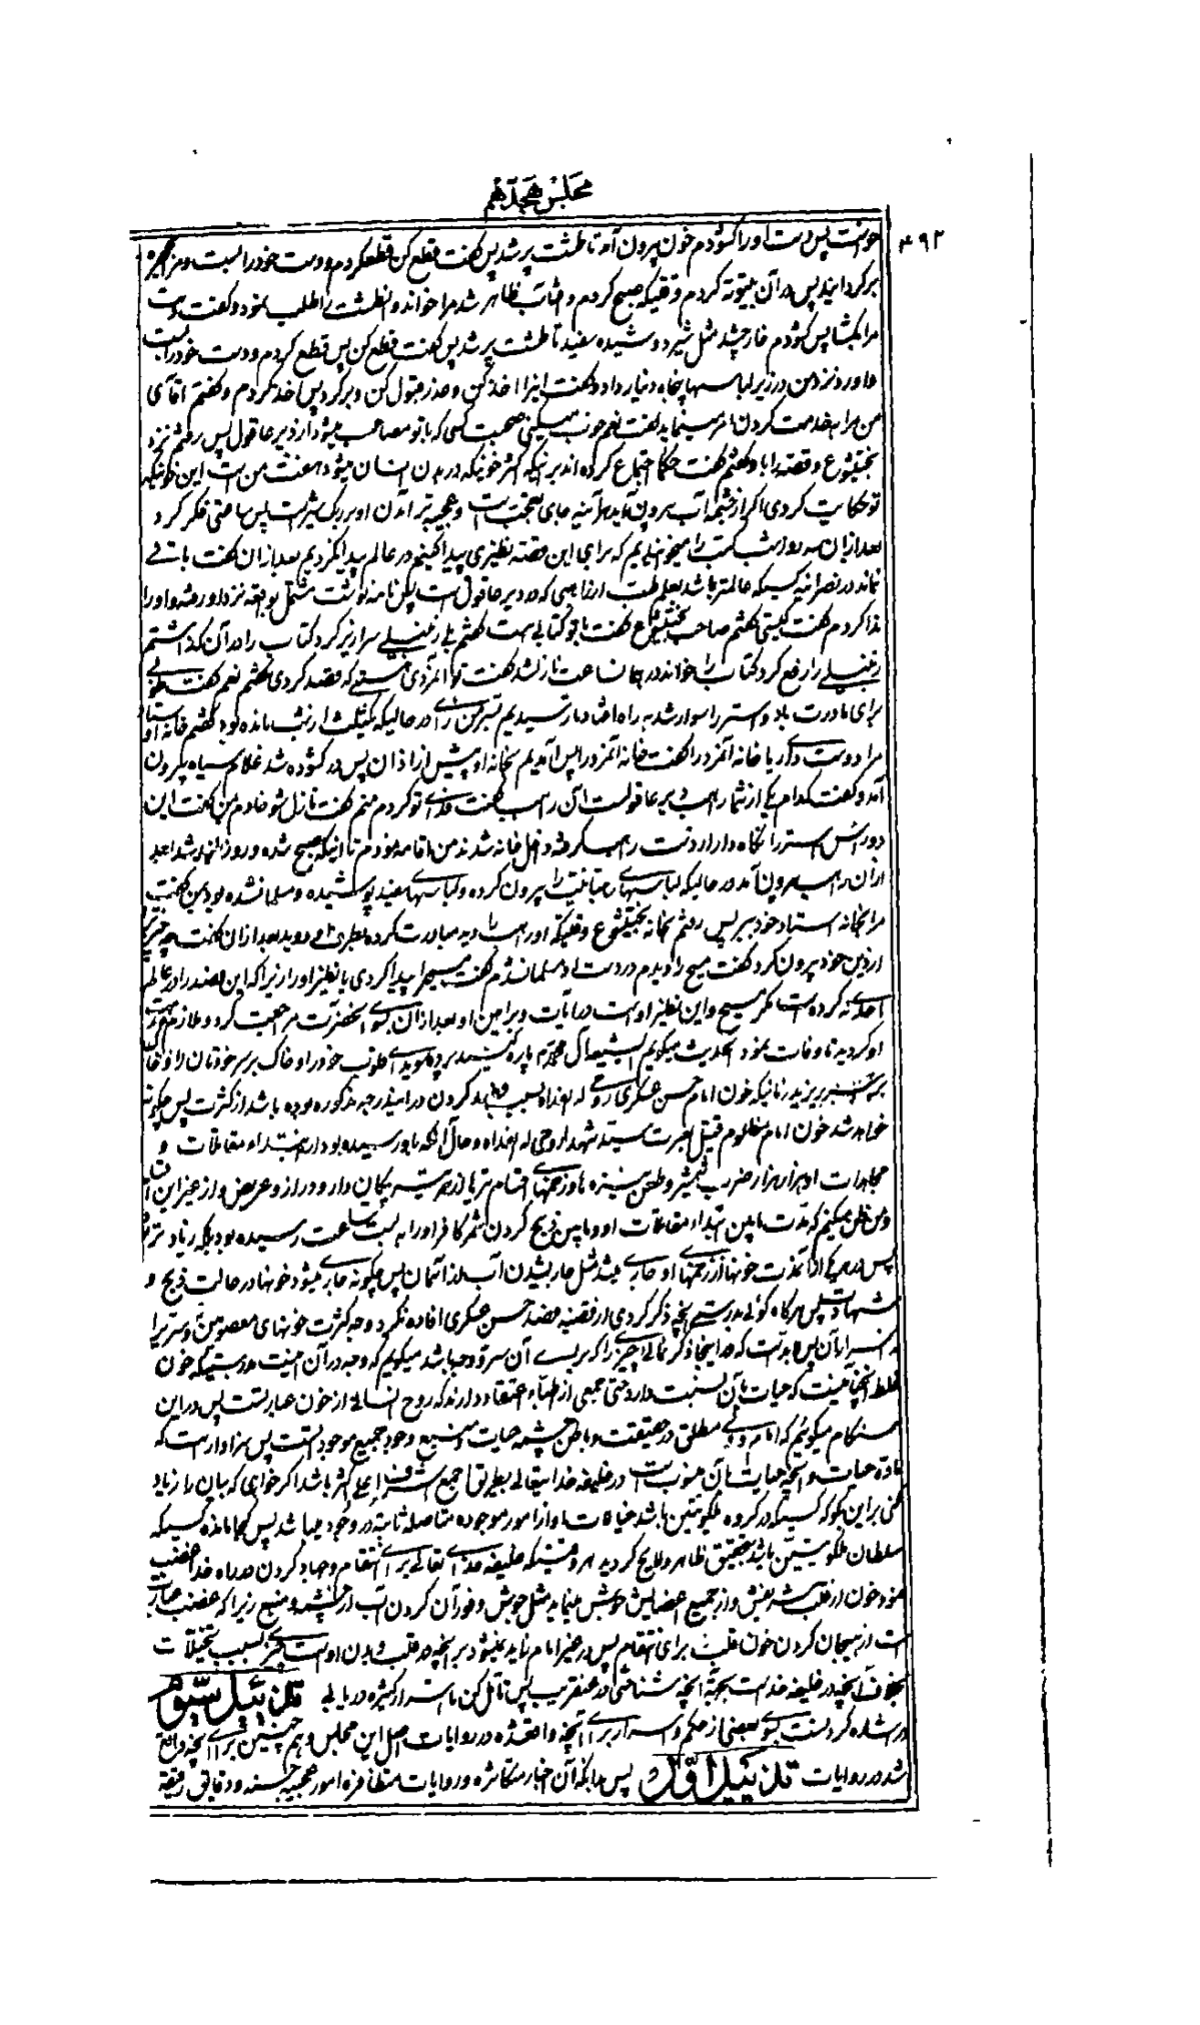 مجلس هجدهم
۴۹۲
خواست پس دست او را گشودم خون بیرون آمد تا طشت پر شد پس گفت قطع کن قطع کردم و دست خود را بست و مرا بحجره
برگردانید پس در آن بیتوته کردم وقتیکه صبح کردم و آفتاب ظاهر شد مرا خواند و طشت را طلب نمود و گفت دست
مرا بگشا پس گشودم خارج شد مثل شیر دوشیده سفید تا طشت پر شد پس گفت قطع کن پس قطع کردم و دست خود را بست
و آورد نزد من در زیر لباسها پنجاه دینار داد و گفت اینرا اخذ کن و عذر قبول کن و برگرد پس اخذ کردم و گفتم آقای
من مرا بخدمت کردن امر مینماید گفت نعم خوب میکنی صحبت کسی که با تو مصاحب میشود از دیر عاقول پس رفتم نزد
بختیشوع و قصه را باو گفتم گفت حکما اجتماع کرده‌اند بر اینکه اکثر خونیکه در بدن انسان میشود هفت من است این خونیکه
تو حکایت کردی اگر از چشمه آب بیرون آید هر آینه جای تعجبست و عجیب‌تر آمدن او بر رنگ شیر است پس ساعتی فکر کرد
بعد از آن سه روز و شب کتب را میخواندیم که برای این قصه نظیری پیدا کنیم در عالم پیدا نکردیم بعد از آن گفت باقی
نماند در نصرانیه کسیکه عالمتر باشد بعلم طب از راهبی که در دیر عاقول است پس نامه نوشت مشتمل بوقعه نزد او رفتم و او را
ندا کردم گفت کیستی گفتم صاحب بختیشوع گفت با تو کتابی هست گفتم بلی زنبیلی سرازیر کرد کتاب را در آن گذاشتم
زنبیلی را رفع کرد کتاب را خواند در همان ساعت نازل شد گفت تو آنمردی هستی که فصد کردی گفتم نعم گفت طوبی
برای مادرت باد و استر را سوار شد به راه افتاد تا رسیدیم بسر من رای در حالیکه یک ثلث از شب مانده بود گفتم خانه استاد
مرا دوست داری یا خانه آنمرد را گفت خانه آنمرد را پس آمدیم بخانه او پیش از اذان پس در گشوده شد غلام سیاه بیرون
آمد و گفت کدام یکی از شما راهب دیر عاقولست آن راهب گفت فدای تو گردم منم گفت نازل شو خادم من گفت این
دو رأس استر را نگاه دار و دست راهب گرفته و داخل خانه شدند من اقامه نمودم تا اینکه صبح شده و روز بلند شد بعد
از آن راهب بیرون آمد در حالیکه لباسهای رهبانیت را بیرون کرده و لباسهای سفید پوشیده و مسلمان شده بود بمن گفت
مرا بخانه استاد خود ببر پس رفتم بخانه بختیشوع وقتیکه او راهب را دید مبادرت کرده بطرف او دوید بعد از آن گفت چه چیز ترا
از دین خود بیرون کرد گفت مسیح را دیدم در دست او مسلمان شدم گفت مسیح را پیدا کردی یا نظیر او را زیرا که این فصد را در عالم
احدی نکرده است مگر مسیح و این نظیر او است در آیات و براهین او بعد از آن بسوی آنحضرت مراجعت کرد و ملازم خدمت
او گردید تا وفات نمود الحدیث میگویم ای شیعه آل محمد پاره کنید پرده‌های قلوب خود را و خاک بر سر خودتان را و خاک
بر سر بریزید زمانیکه خون امام حسن عسکری روحی له الفداه بسبب فصد کردن در اینقدر مذکوره بوده باشد از کثرت پس چگونه
خواهد شد خون امام مظلوم قتیل العبرات سید شهدا روحی له الفداه و حال آنکه باو رسیده بود از ابتداء مقاتلات و
مجاهدات او هزار هزار ضرب شمشیر و طعن نیزه‌ها و زخمهای اقسام تیرها از تیر پیکان دار و دراز و عریض و از غیر این اقسام
و من ظن میکنم که مدت مابین ابتداء مقاتلات او و مابین ذبح کردن شمر کافر او را به بیست ساعت رسیده بود بلکه زیاد تر
پس در هر یکی از آنمدت خونها از زخمهای او جاری میشد مثل جاری شدن آب از ناودان پس چگونه جاری میشود خونها در حالت ذبح و
شهادت پس هرگاه گوئی بدرستی آنچه ذکر کردی از قضیه فصد حسن عسکری افاده نکرد وجه کثرت خونهای معصومین و سر را
اسرار آن پس بدانست که در اینجا ذکر نمائی چیزی را که برای آن سر و وجه باشد میگویم که وجه در آن اینست بدرستیکه خون
غلط آنچنانیست که حیات بآن نسبت دارد حتی جمعی از اطباء اعتقاد دارند که روح انسان از خون عبارتست پس در این
هنگام میگوئیم که امام و ولی مطلق در حقیقت و باطن چشمه حیات و منبع وجود جمیع موجوداتست پس سزاوار است که
ماده حیات و آنچه حیات بآن منوب است در خلیفه خدایتعالی بطریق اجمع اشرف اعلی اکثر باشد اگر خواهی که بیان را زیاد
کنی بر این بگو که کسیکه در گروه ملکوتیین باشد خیالات او از امور موجوده متاصله ثابته در وجود میباشد پس کجا مانده کسیکه
سلطان ملکوتیین باشد بتحقیق ظاهر و لایح گردید هر وقتیکه خلیفه خدای تعالی برای انتقام و جهاد کردن در راه خدا غضب
نمود خون از قلب شریفش و از جمیع اعضایش جوشش مینماید مثل جوش و فوران کردن آب از چشمه و منبع زیرا که غضب عبارت
است از هیجان کردن خون قلب برای انتقام پس در غیر امام زاید نمیشود بر آنچه در قلب و بدن اوست چیزی بسبب تخیلات
بخلاف آنچه در خلیفه خداست بجهة آنچه شناختی در عنقریب پس تامل کن تا اسرار کثیره دریابی تذییل سیّوم
در اشاره کردنست بسوی بعضی از حکم و اسرار برای آنچه واقعشده در روایات اصل این مجلس و هم چنین برای آنچه واقع
شد در روایات تذییل اوّل پس بدانکه آن اخبار متکاثره و روایات متظافره امور عجیبه حسنه و دقایق دقیقه